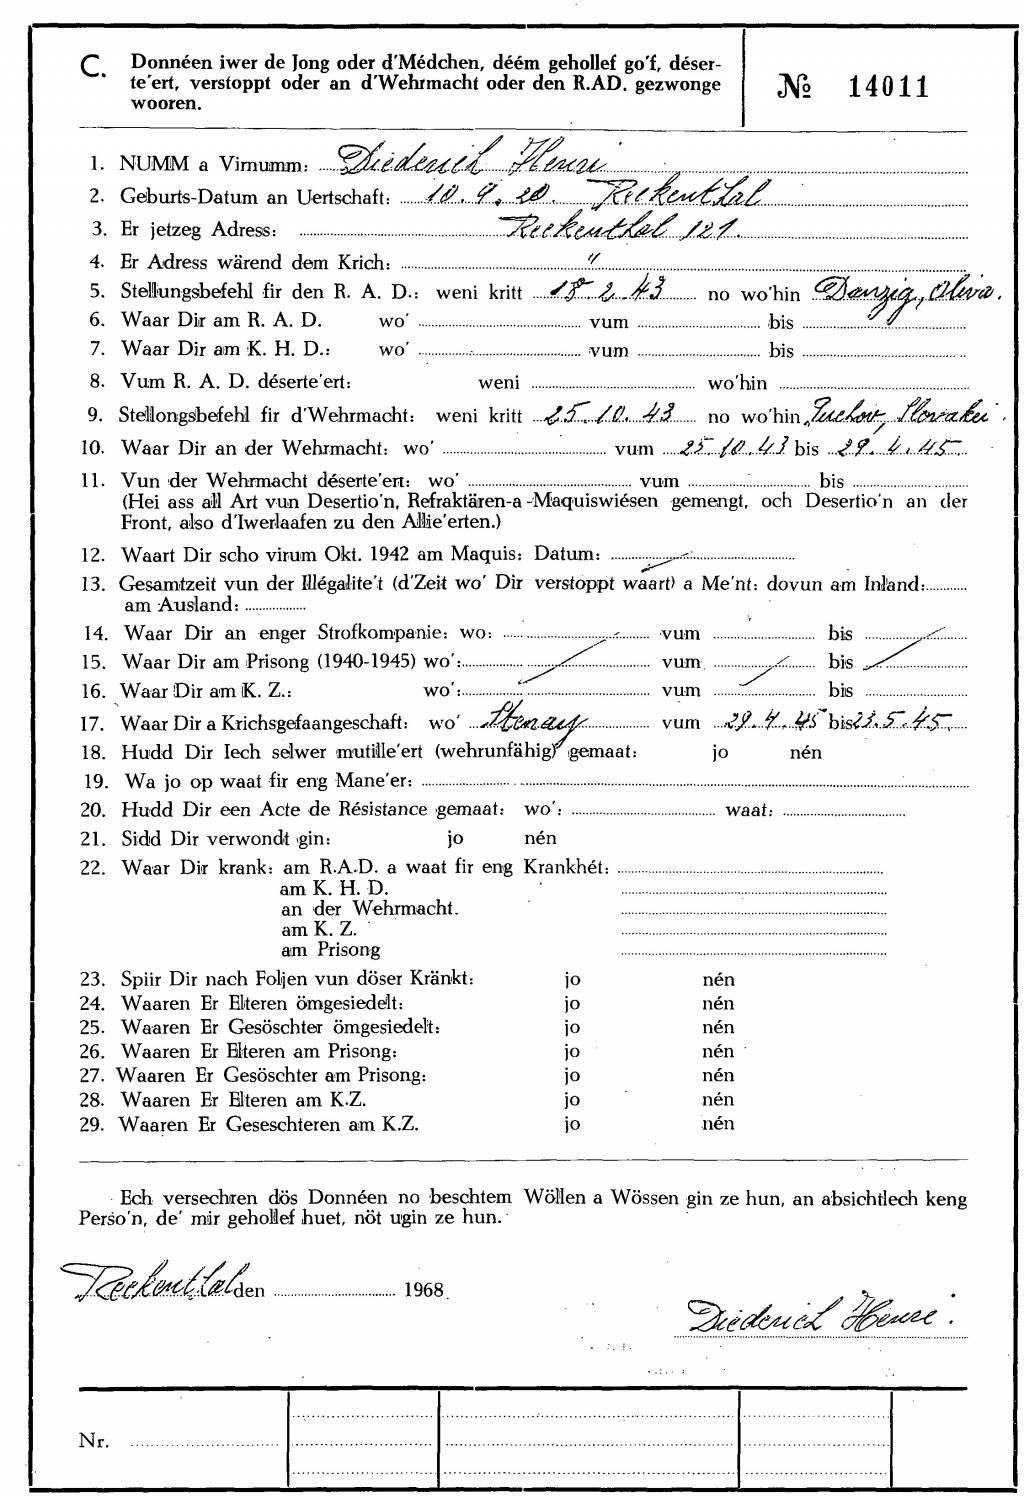 C. Donnéen iwer de Jong oder d'Médchen, déém gehollef go'f, déser-
te'ert, verstoppt oder an d'Wehrmacht oder den R.AD. gezwonge
wooren.
№ 14011
1. NUMM a Virnumm: Diederich Henri
2. Geburts-Datum an Uertschaft: 10.9.20. Reckenthal
3. Er jetzeg Adress: Reckenthal 121.
4. Er Adress wärend dem Krich: "
5. Stellungsbefehl fir den R. A. D.: weni kritt 18.2.43 no wo'hin Danzig, Oliva.
6. Waar Dir am R. A. D. wo' vum bis
7. Waar Dir am K. H. D.: wo' vum bis
8. Vum R. A. D. déserte'ert: weni wo'hin
9. Stellongsbefehl fir d'Wehrmacht: weni kritt 25.10.43 no wo'hin Puchov, Slovakei.
10. Waar Dir an der Wehrmacht: wo' vum 25.10.43 bis 29.4.45.
11. Vun der Wehrmacht déserte'ert: wo' vum bis
(Hei ass all Art vun Desertio'n, Refraktären-a-Maquiswiésen gemengt, och Desertio'n an der
Front, also d'Iwerlaafen zu den Allie'erten.)
12. Waart Dir scho virum Okt. 1942 am Maquis: Datum:
13. Gesamtzeit vun der Illégalite't (d'Zeit wo' Dir verstoppt waart) a Me'nt: dovun am Inland:
am Ausland:
14. Waar Dir an enger Strofkompanie: wo: vum bis
15. Waar Dir am Prisong (1940-1945) wo': vum bis
16. Waar Dir am K. Z.: wo': vum bis
17. Waar Dir a Krichsgefaangeschaft: wo' Stenay vum 29.4.45 bis 23.5.45.
18. Hudd Dir Iech selwer mutille'ert (wehrunfähig) gemaat: jo nén
19. Wa jo op waat fir eng Mane'er:
20. Hudd Dir een Acte de Résistance gemaat: wo': waat:
21. Sidd Dir verwondt gin: jo nén
22. Waar Dir krank: am R.A.D. a waat fir eng Krankhét:
am K. H. D.
an der Wehrmacht.
am K. Z.
am Prisong
23. Spiir Dir nach Foljen vun döser Kränkt: jo nén
24. Waaren Er Elteren ömgesiedelt: jo nén
25. Waaren Er Gesöschter ömgesiedelt: jo nén
26. Waaren Er Elteren am Prisong: jo nén
27. Waaren Er Gesöschter am Prisong: jo nén
28. Waaren Er Elteren am K.Z. jo nén
29. Waaren Er Geseschteren am K.Z. jo nén
Ech versechren dös Donnéen no beschtem Wöllen a Wössen gin ze hun, an absichtlech keng
Perso'n, de' mir gehollef huet, nöt ugin ze hun.
Reckenthal den 1968
Diederich Henri.
Nr.